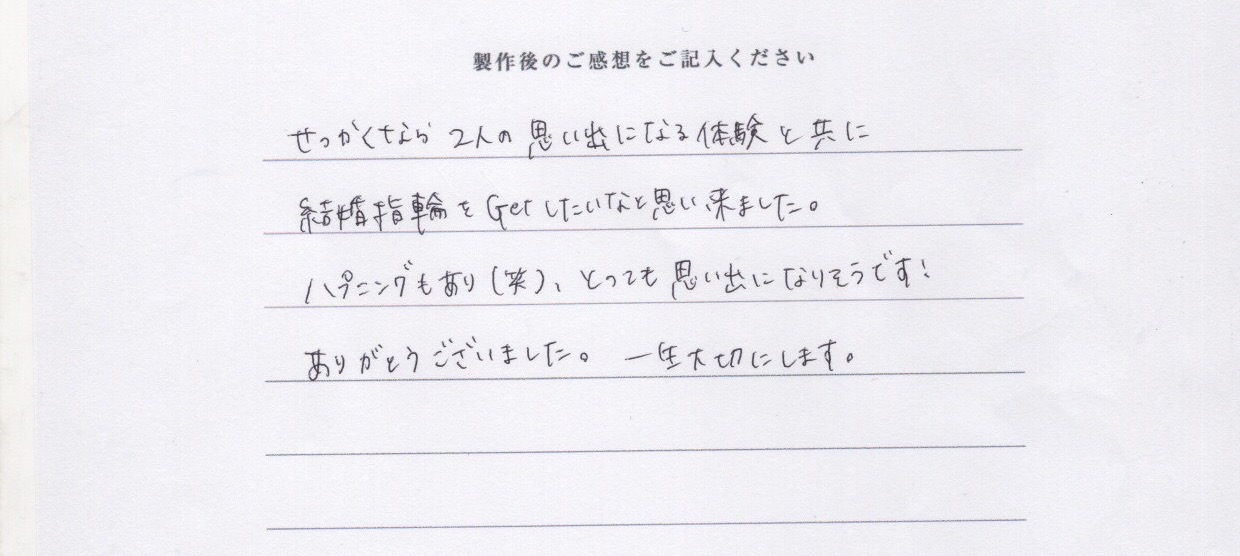 製作後のご感想をご記入ください
せっかくなら 2人の思い出になる体験と共に
結婚指輪を Getしたいなと思い来ました。
ハプニングもあり(笑)、とっても思い出になりそうです!
ありがとうございました。 一生大切にします。